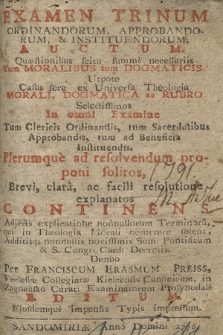 EXAMEN TRINUM
ORDINANDORUM, APPROBANDO-
RUM, & INSTITUENDORUM,
AUCTUM.
Quæstionibus scitu summè necessariis
Tum MORALIBUS tum DOGMATICIS.
Utpote
Casus ferè ex Universa Theologia
MORALI, DOGMATICA ac RUBRO
Selectissimos
In omni Examine
Tum Clericis Ordinandis, tum Sacerdotibus
Approbandis, tum ad Beneficia
Instituendis.
Plerumquè ad resolvendum pro-
poni solitos, 1791.
Brevi, clarâ, ac facili resolutione
explanatos
CONTINENS
Adjectâ explicatione nonnullorum Terminorũ,
qui in Theologia Morali occurrere solent,
Additisq; nonnullis novissimis Sum: Pontificum
& S. Congr: Card: Decretis.
Denuo
Per FRANCISCUM ERASMUM PREISS,
Ecclesiæ Collegiatæ Kielcensis Canonicum, in
Zagnańsko Curati Examinatorum Prosynodalē
EDITUM.
Ejusdemque Impensis Typis Impressum.
SANDOMIRIÆ Anno Domini